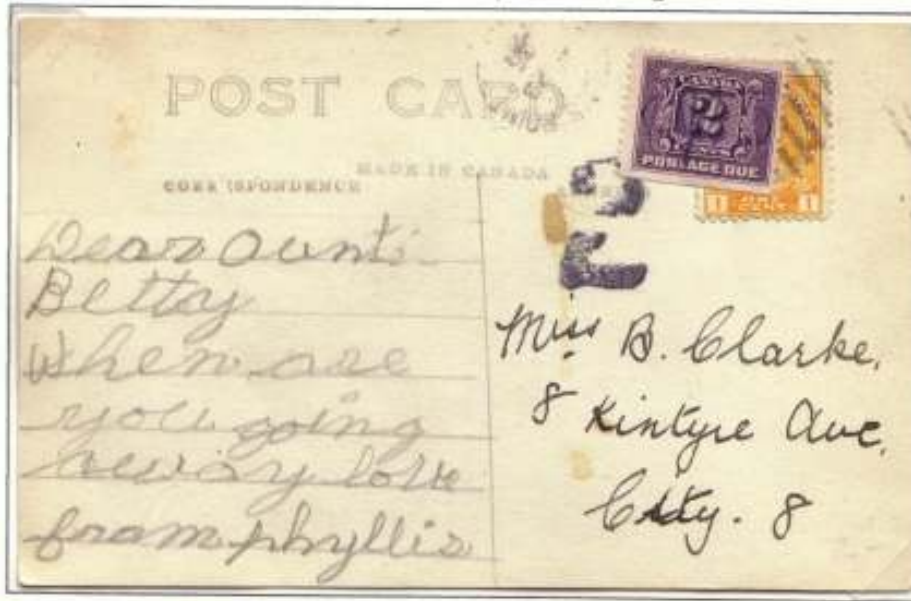 POST CARD
MADE IN CANADA
CORRESPONDENCE
CANADA
2
CENTS
POSTAGE DUE
1 1
T 2
Dear Aunti
Bettay
When are
you going
away love
fram phyllis
Miss B. Clarke,
8 Kintyre Ave,
City. 8